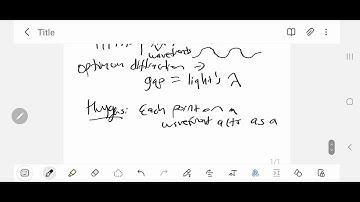 Title
wavefronts
optimum diffraction →
gap = light's λ
Huygens: Each point on a
wavefront acts as a
1/1